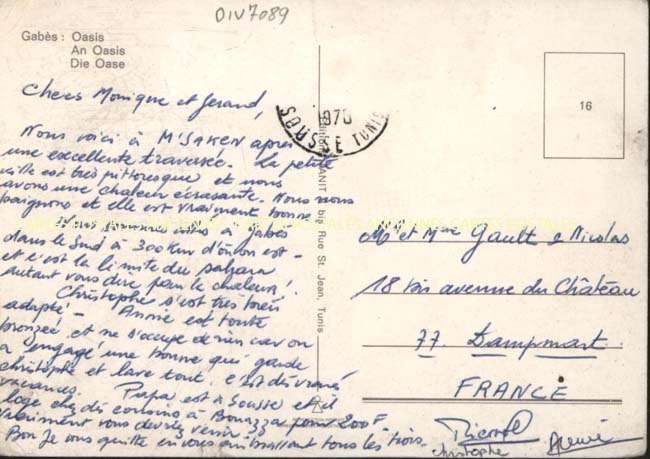 OIV7089
Gabès : Oasis
An Oasis
Die Oase
Chers Monique et Gerard,
Nous voici à M'SAKEN après
une excellente traversée. La petite
ville est très pittoresque et nous
avons une chaleur écrasante. Nous nous
baignons et elle est vraiment bonne.
Nous sommes allés à Gabès
dans le Sud à 300 Km d'où on est -
et c'est la limite du sahara
autant vous dire pour la chaleur !
Christophe s'est très bien
adapté - Annie est toute
bronzée et ne s'occupe de rien car on
a engagé une bonne qui garde
christophe et lave tout. C'est des vraies
vacances. Papa est à Sousse et il
loge chez des cousins à Bouazza pour 200F
Vraiment vous devrez venir
Bon je vous quitte en vous embrassant tous les trois.
SOUSSE TUNIS
1970
Rue St. Jean, Tunis
16
Mr et Mme Gault & Nicolas
18 bis avenue du Château
77 Dampmart
FRANCE
christophe